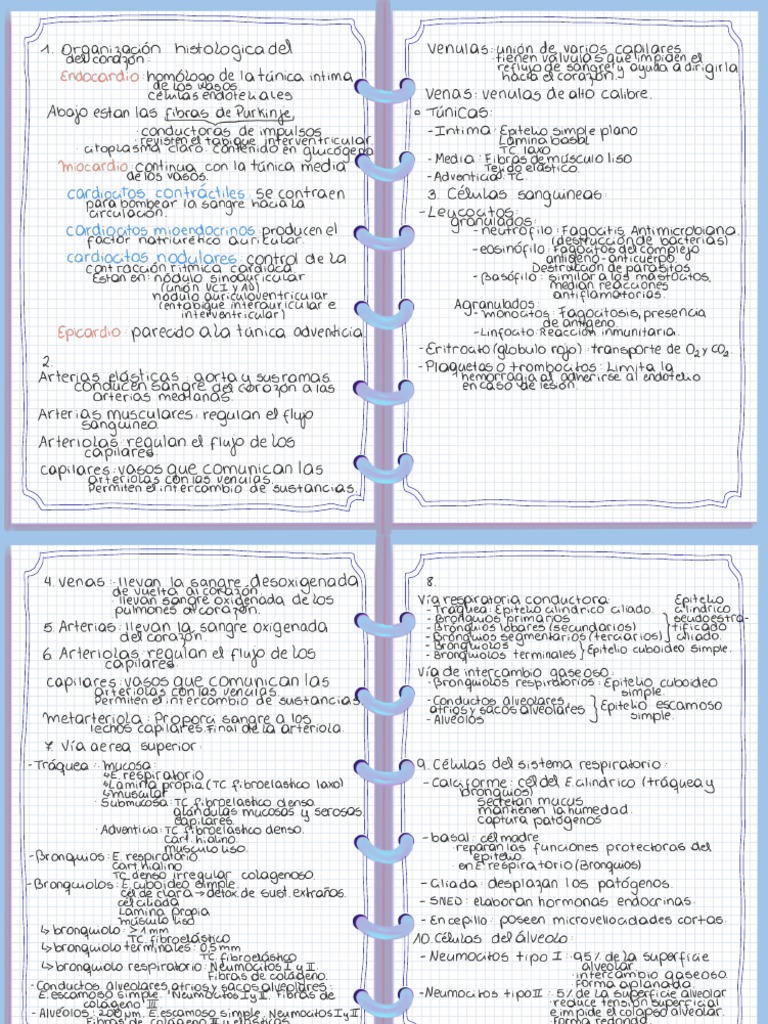 1. Organización histologica del
del corazón:
Endocardio: homólogo de la túnica intima
de los vasos.
células endoteliales
Abajo estan las fibras de Purkinje,
conductoras de impulsos
revisten el tabique interventricular
citoplasma claro: contenido en glucógeno
miocardio: continua con la túnica media
de los vasos.
cardiocitos contráctiles: se contraen
para bombear la sangre hacia la
circulación.
cardiocitos mioendocrinos: producen el
factor natriuretico auricular.
cardiocitos nodulares: control de la
contracción ritmica cardiaca
Estan en: nódulo sinoauricular
(unión VCI y AD)
nódulo auriculoventricular
(entabique interauricular e
interventricular)
Epicardio: parecido a la túnica adventicia
2.
Arterias elásticas: aorta y sus ramas
conducen sangre del corazón a las
arterias medianas.
Arterias musculares: regulan el flujo
sanguineo.
Arteriolas: regulan el flujo de los
capilares.
capilares: vasos que comunican las
arteriolas con las venulas.
Permiten el intercambio de sustancias.
Venulas: unión de varios capilares
tienen valvulas que impiden el
reflujo de sangre y ayuda a dirigirla
hacia el corazón.
Venas: venulas de alto calibre.
° Túnicas:
- Intima: Epitelio simple plano
Lamina basal
TC laxo
- Media: Fibras de músculo liso
Tejido elástico.
- Adventicia: TC.
3. Células sanguineas:
- Leucocitos:
granulados:
- neutrófilo: Fagocitis Antimicrobiana
(destrucción de bacterias)
- eosinófilo: Fagocitos del complejo
antigeno-anticuerpo.
Destrucción de parásitos
- Basófilo: similar a los mastocitos,
median reacciones
antiflamatorias.
Agranulados:
- monocitos: Fagocitosis, presencia
de antigeno.
- Linfocito: Reacción inmunitaria.
- Eritrocito (globulo rojo): transporte de O2 y CO2.
- Plaquetas o trombocitos: Limita la
hemorragia al adherirse al endotelio
en caso de lesión.
4. venas: llevan la sangre desoxigenada
de vuelta al corazón.
llevan sangre oxigenada de los
pulmones al corazón.
5. Arterias: llevan la sangre oxigenada
del corazón.
6. Arteriolas: regulan el flujo de los
capilares.
capilares: vasos que comunican las
arteriolas con las venulas.
Permiten el intercambio de sustancias
metarteriola: Propora sangre a los
lechos capilares. Final de la arteriola.
7. Vía aerea superior:
- Tráquea: mucosa:
↳ E. respiratorio
↳ Lamina propia (TC fibroelastico laxo)
↳ muscular
· Submucosa: TC fibroelastico denso
glandulas mucosas y serosas
capilares.
· Adventicia: TC fibroelastico denso.
cart. hialino.
músculo liso.
- Bronquios: E. respiratorio
cart. hialino
TC denso irregular colagenoso
- Bronquiolos: E. cuboideo simple
cél de clara → detox de sust. extraños.
cél ciliada
Lamina propia
músculo liso
↳ bronquiolo: >1mm
TC fibroelástico
↳ bronquiolo terminales: 0.5mm
TC fibroelástico
↳ bronquiolo respiratorio: Neumocitos I y II.
Fibras de colágeno.
- Conductos alveolares, atrios y sacos alveolares:
E. escamoso simple. Neumocitos I y II. Fibras de
colágeno III
- Alvéolos: 200 µm. E. escamoso simple. Neumocitos I y II
Fibras de colágeno II y elásticas
8.
Vía respiratoria conductora:
- Tráquea: Epitelio cilindrico ciliado.
- Bronquios primarios
- Bronquios lobares (secundarios)
- Bronquios segmentarios (terciarios)
Epitelio
cilindrico
seudoestra-
tificado
ciliado.
- Bronquiolos
- Bronquiolos terminales
Epitelio cuboideo simple.
Vía de intercambio gaseoso:
- Bronquiolos respiratorios: Epitelio cuboideo
simple.
- Conductos alveolares
atrios y sacos alveolares
- Alveolos
Epitelio escamoso
simple.
9. Células del sistema respiratorio:
- Calciforme: cel del E. cilindrico (tráquea y
bronquios)
secretan mucus
mantienen la humedad.
captura patógenos
- basal: cél madre
reparan las funciones protectoras del
epitelio
en E. respiratorio (Bronquios)
- Ciliada: desplazan los patógenos.
- SNED: elaboran hormonas endocrinas.
- En cepillo: poseen microvellocidades cortas.
10. Células del álveolo:
- Neumocitos tipo I: 95% de la superficie
alveolar
intercambio gaseoso.
forma aplanada.
- Neumocitos tipo II: 5% de la superficie alveolar
reduce tensión superficial
e impide el colapso alveolar.
Forma redonda